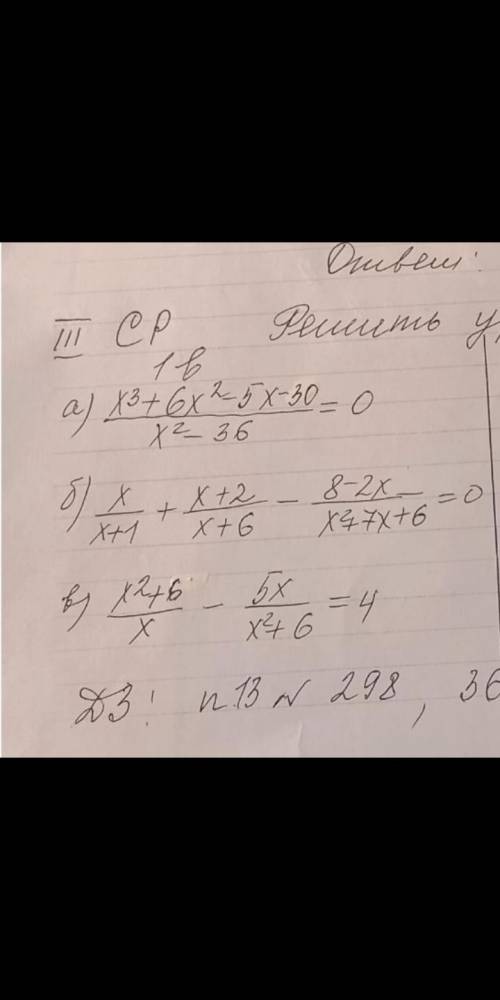 Ответ:
III СР Решить у
1в
а) x³+6x²-5x-30 / x²-36 = 0
б) x / x+1 + x+2 / x+6 - 8-2x / x²+7x+6 = 0
в) x²+6 / x - 5x / x²+6 = 4
ДЗ! п.13 № 298, 36